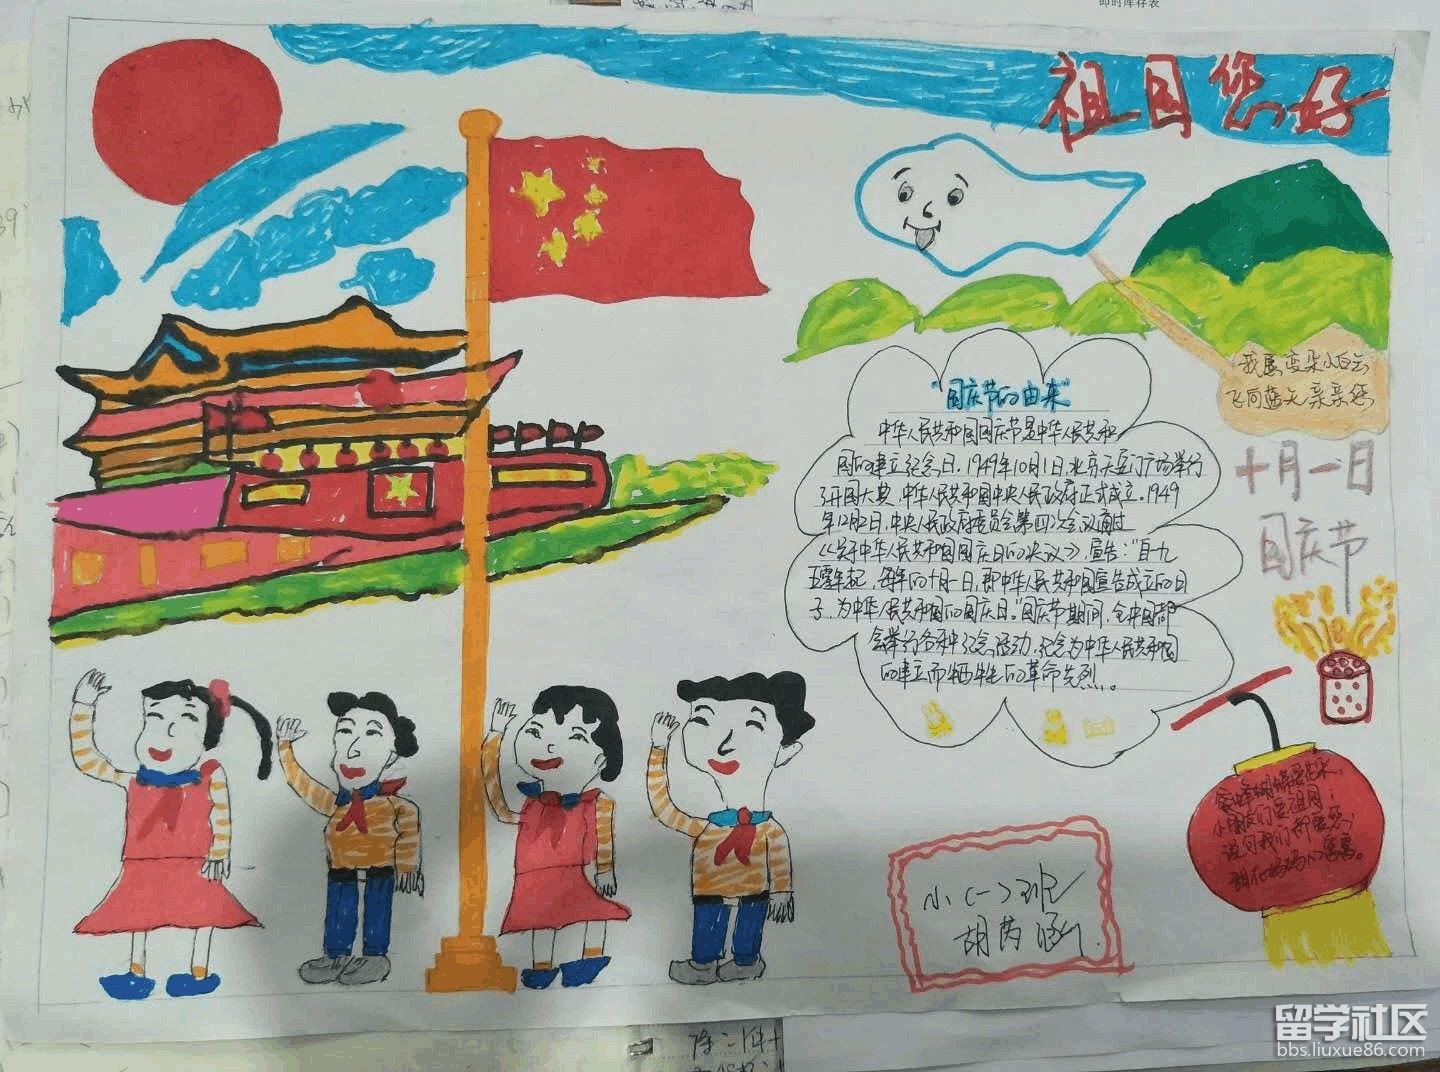 祖国您好
我愿变朵小白云
飞向蓝天亲亲您
"国庆节的由来"
中华人民共和国国庆节是中华人民共和
国的建立纪念日，1949年10月1日，北京天安门广场举行
了开国大典，中华人民共和国中央人民政府正式成立。1949
年12月2日，中央人民政府委员会第四次会议通过
《关于中华人民共和国国庆日的决议》，宣告："自一九
五零年起，每年的十月一日，即中华人民共和国宣告成立的日
子，为中华人民共和国的国庆日。"国庆节期间，全中国都
会举行各种纪念活动，纪念为中华人民共和国
的建立而牺牲的革命先烈。
十月一日
国庆节
小朋友们爱祖国！
小(一)班
胡芮涵
留学社区
bbs.liuxue86.com